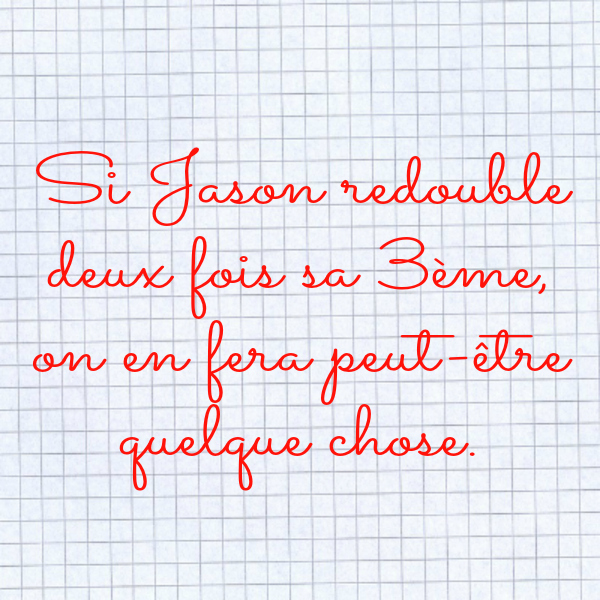 Si Jason redouble
deux fois sa 3ème,
on en fera peut-être
quelque chose.